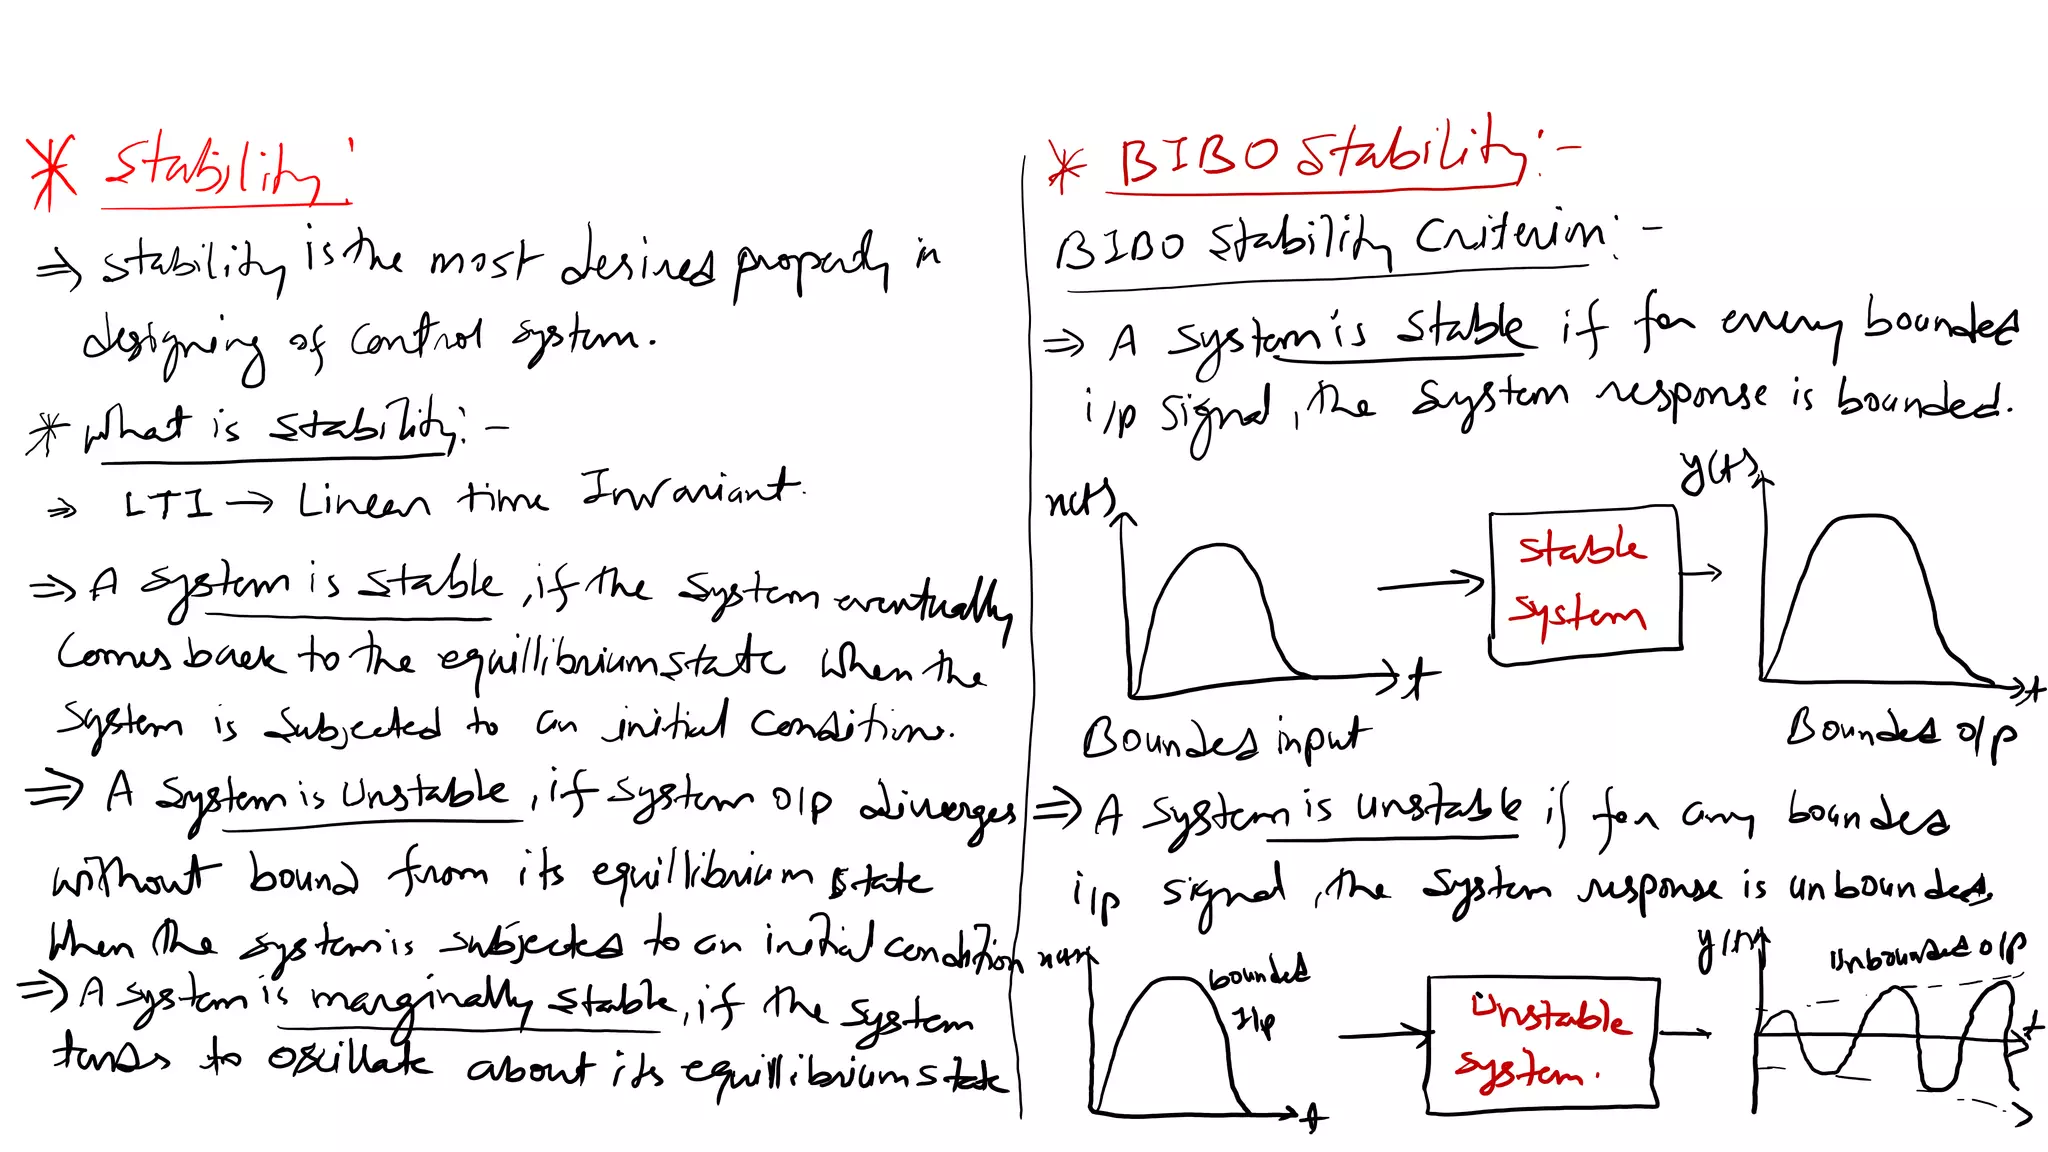 * Stability:
⇒ Stability is the most desired property in
designing of control system.
* What is stability:-
⇒ LTI → Linear time Invariant.
⇒ A system is stable, if the system eventually
comes back to the equillibrium state when the
system is subjected to an initial condition.
⇒ A system is unstable, if system o/p diverges
without bound from its equillibrium state
when the system is subjected to an initial condition
⇒ A system is marginally stable, if the system
tends to oscillate about its equillibrium state
* BIBO Stability:-
BIBO Stability Criterion:-
⇒ A system is stable if for every bounded
i/p signal, the system response is bounded.
x(t)
t
Bounded input
Stable
system
y(t)
t
Bounded o/p
⇒ A system is unstable if for any bounded
i/p signal, the system response is unbounded.
x(t)
bounded
I/p
t
Unstable
system.
y(t)
Unbounded o/p
t